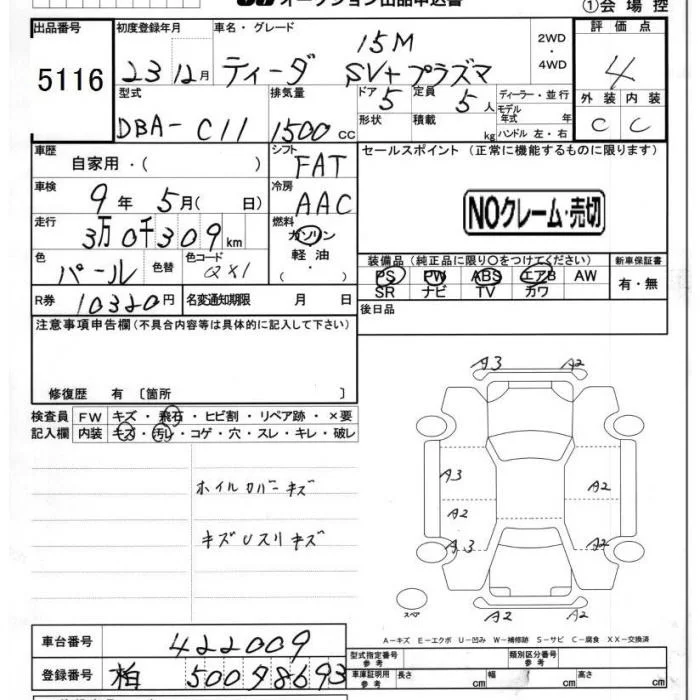 オークション出品申込書
①会場控
出品番号 初度登録年月 車名・グレード 評価点
5116 23 12月 ティーダ 15M SV+プラズマ 2WD・4WD 4
型式 排気量 ドア 定員 ディーラー・並行 外装 内装
DBA-C11 1500cc 5 5人 モデル年式 年 C C
形状 積載 kg ハンドル 左・右
車歴 自家用・( ) シフト FAT セールスポイント(正常に機能するものに限ります)
車検 9年5月( 日) 冷房 AAC
NOクレーム・売切
走行 3万0千309km 燃料 ガソリン・軽油・( )
色 パール 色替 色コード QX1
装備品(純正品に限り○をつけてください) 新車保証書
PS PW ABS エアB AW 有・無
SR ナビ TV カワ
R券 10320円 名変通知期限 月 日
後日品
注意事項申告欄(不具合内容等は具体的に記入して下さい)
修復歴 有 〔箇所 〕
検査員記入欄
FW キズ・飛石・ヒビ割・リペア跡・×要
内装 キズ・汚レ・コゲ・穴・スレ・キレ・破レ
ホイルカバーキズ
キズUスリキズ
A3 A2
A3 A2
A2
A3 A2
A2 A2
スペア
A-キズ E-エクボ U-凹み W-補修跡 S-サビ C-腐食 XX-交換済
車台番号 422009
登録番号 柏 500 9 8693
型式指定番号 参考 類別区分番号 参考
車庫証明用 参考 長さ cm 幅 cm 高さ cm